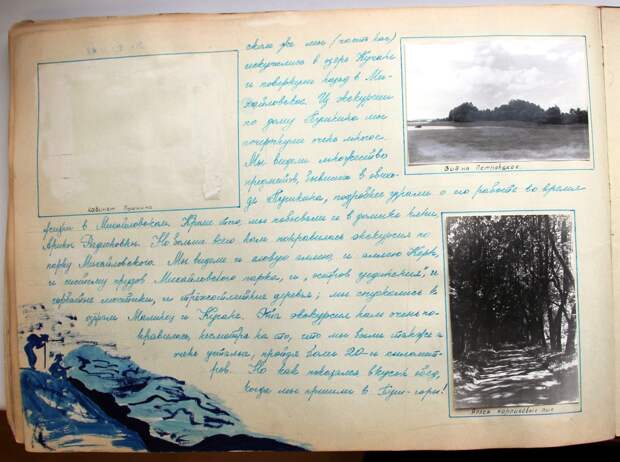 скам же мы (часть нас)
искупались в озере Кучане
и повернули назад в Ми-
хайловское. Из экскурсии
по дому Пушкина мы
почерпнули очень многое.
Мы видели множество
предметов, бывших в обихо-
де Пушкина, подробнее узнали о его работе во время
в Михайловском. Кроме того, мы побывали и в домике няни,
Арины Родионовны. Но больше всего нам понравилась экскурсия по
парку Михайловского. Мы видели и еловую аллею, и аллею Керн,
и систему прудов Михайловского парка, и "остров уединения", и
горбатые мостики, и трёхсотлетние деревья; мы спускались к
озерам Маленец и Кучане. Эта экскурсия нам очень по-
нравилась, несмотря на то, что мы были
очень усталы, пройдя более 20-и километ-
ров. Но как показался вкусен обед,
когда мы пришли в Пуш-горы!
Кабинет Пушкина
Вид на Петровское.
Аллея вековых лип